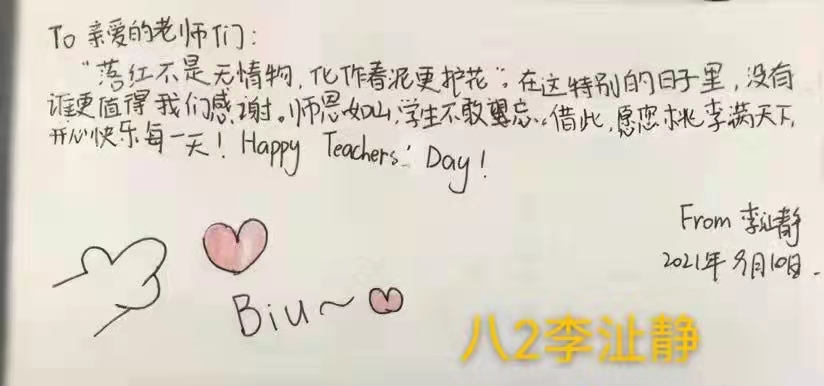 To 亲爱的老师们:
“落红不是无情物,化作春泥更护花”。在这特别的日子里,没有
谁更值得我们感谢。师恩如山,学生不敢遗忘。借此,愿您桃李满天下,
开心快乐每一天! Happy Teachers' Day!
From 李沚静
2021年9月10日.
Biu~
八2李沚静